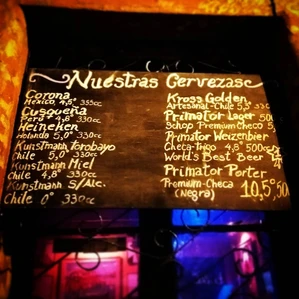 Nuestras Cervezas
Corona
Mexico 4,5° 355cc
Cusqueña
Peru 4,8° 330cc
Heineken
Holanda 5,0° 330cc
Kunstmann Torobayo
Chile 5,0° 330cc
Kunstmann Miel
Chile 4,8° 330cc
Kunstmann S/Alc.
Chile 0° 330cc
Kross Golden
Artesanal-Chile 5,3°
Primator Lager 500
Schop Premium Checo 5,
Primator Weizenbier
Checa-Trigo 4,8° 500cc
World's Best Beer
Primator Porter
Premium-Checa
(Negra) 10,5° 50